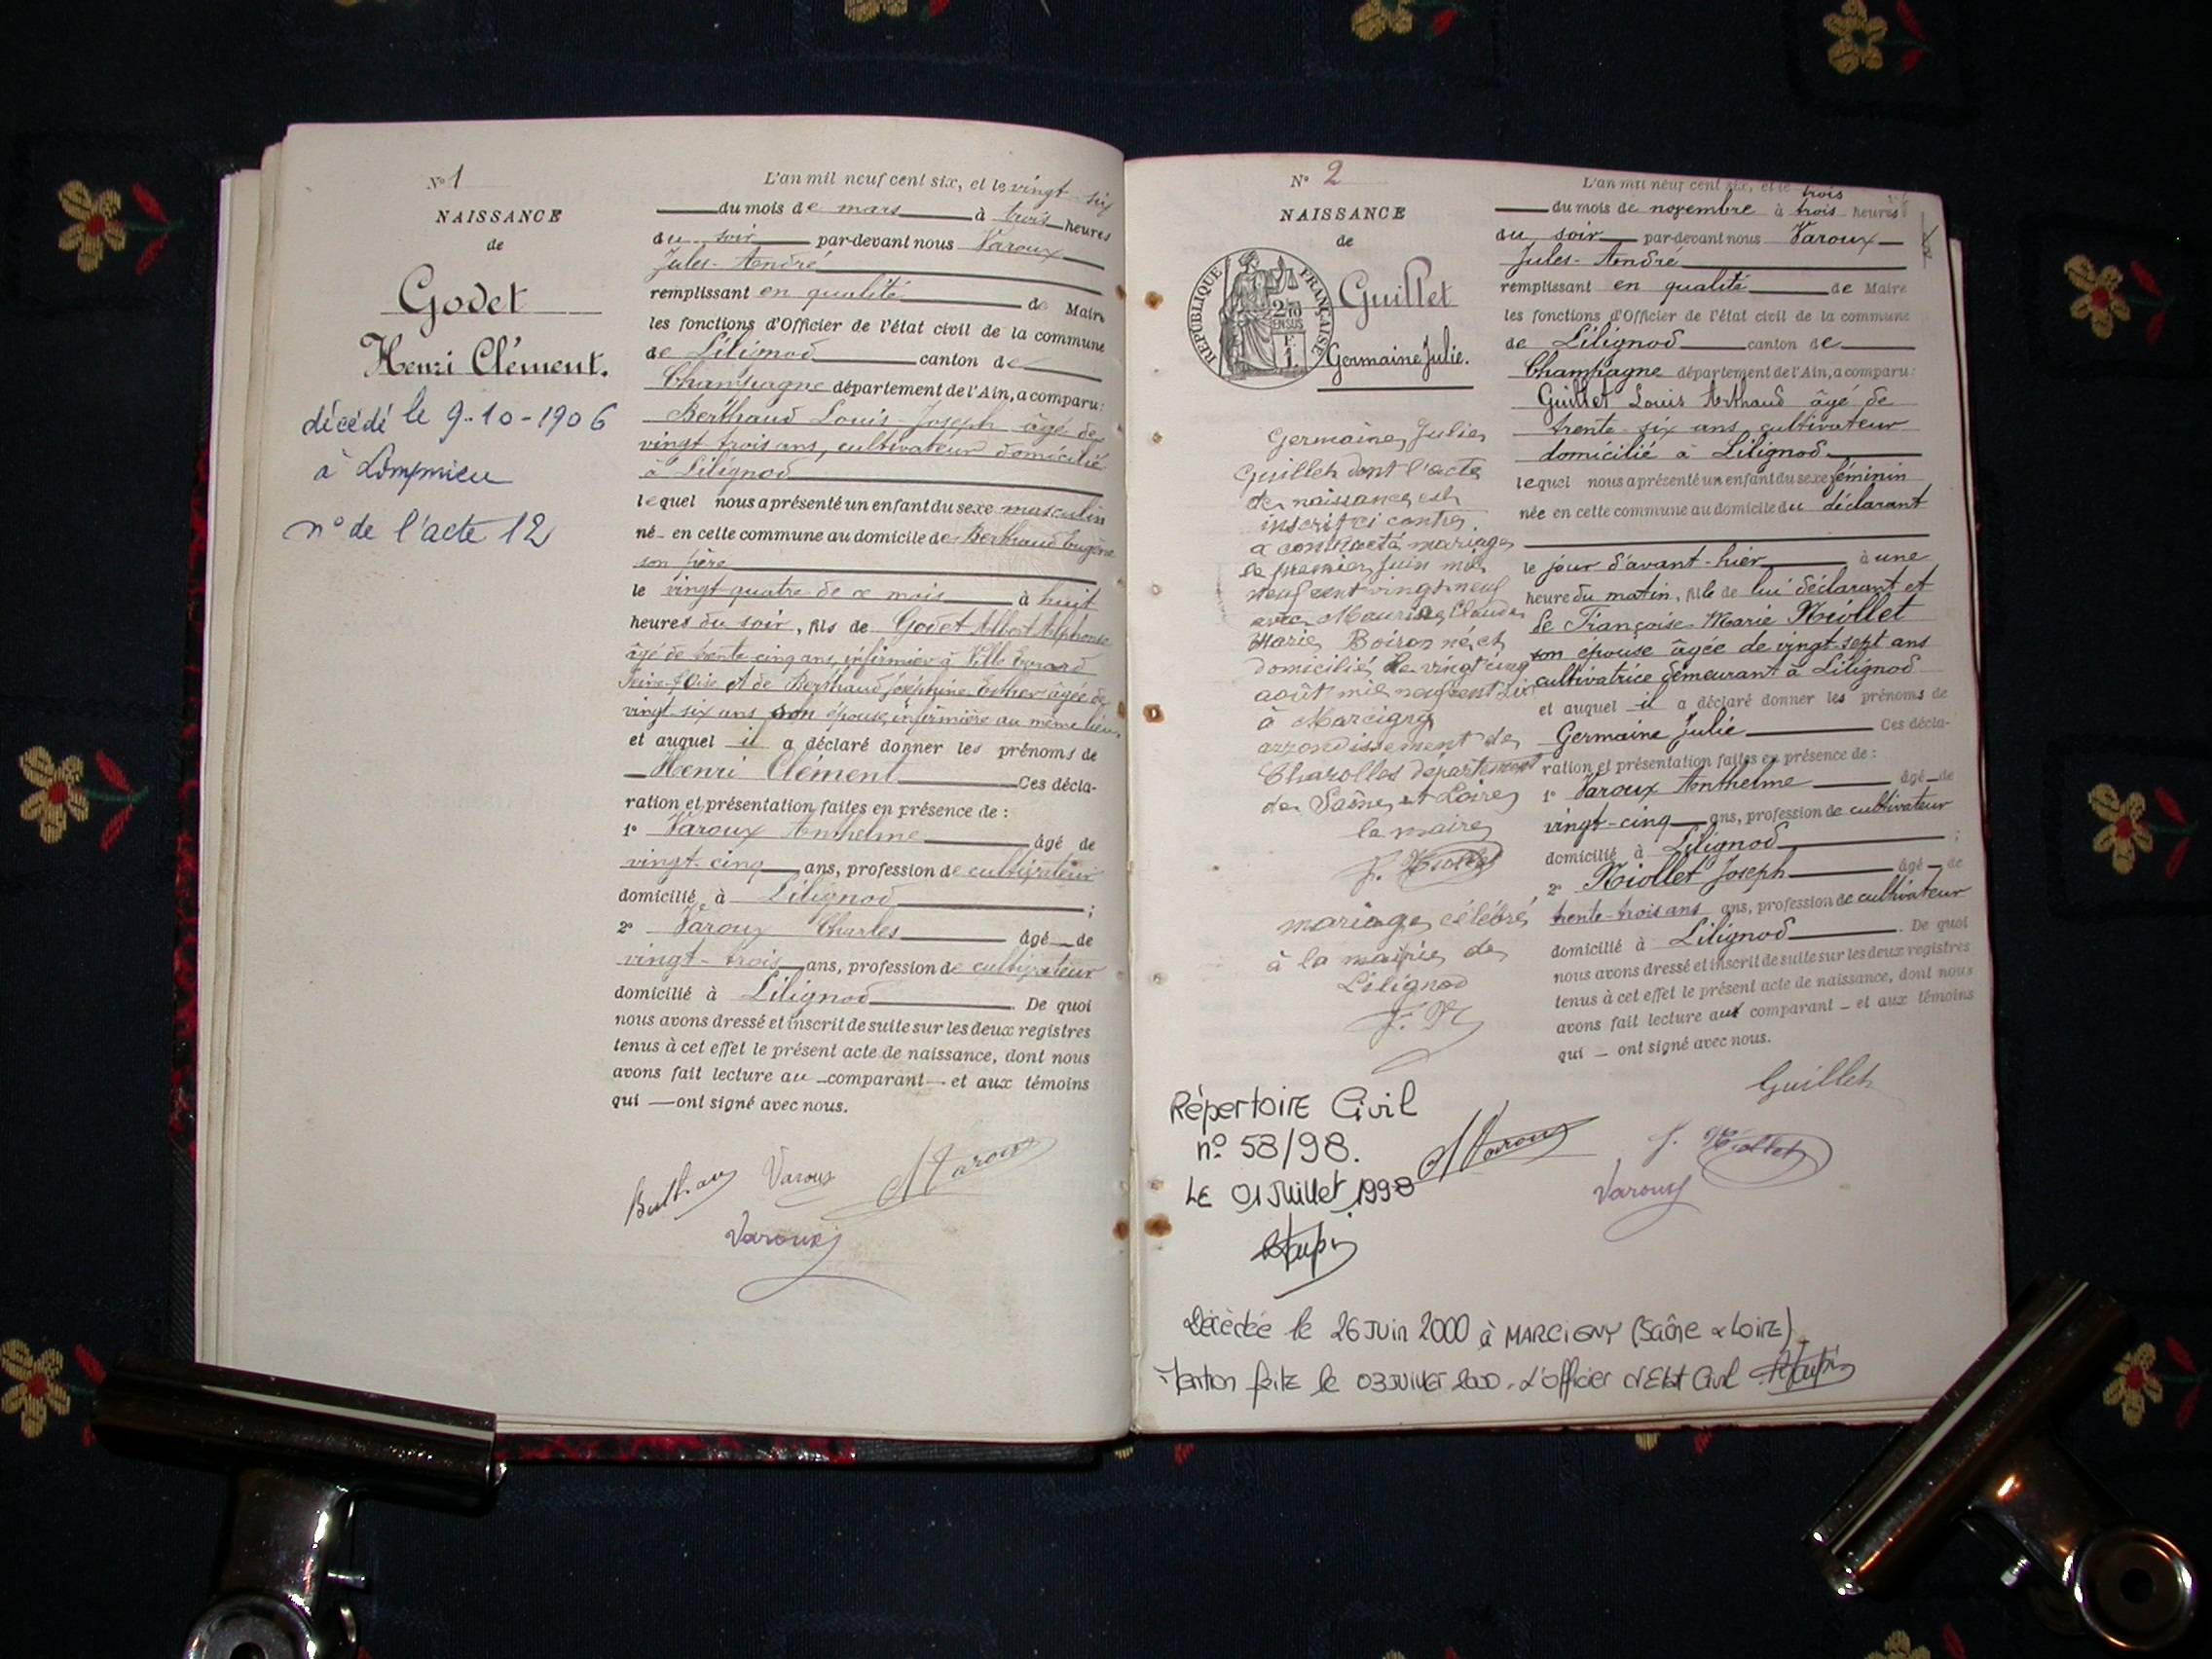 N° 1
NAISSANCE
de
Godet
Henri Clément.
décédé le 9-10-1906
à Lompnieu
n° de l'acte 12
L'an mil neuf cent six, et le vingt-six
du mois de mars à trois heures
du soir par-devant nous Varoux
Jules-André
remplissant en qualité de Maire
les fonctions d'Officier de l'état civil de la commune
de Lilignod canton de
Champagne département de l'Ain, a comparu:
Berthaud Louis Joseph âgé de
vingt trois ans, cultivateur domicilié
à Lilignod
lequel nous a présenté un enfant du sexe masculin
né en cette commune au domicile de Berthaud Eugène
son père
le vingt-quatre de ce mois à huit
heures du soir, fils de Godet Albert Alphonse
âgé de trente cinq ans, infirmier à Ville Evrard
Seine-&-Oise et de Berthaud Joséphine Esther âgée de
vingt six ans son épouse, infirmière au même lieu,
et auquel il a déclaré donner les prénoms de
Henri Clément Ces décla-
ration et présentation faites en présence de :
1° Varoux Anthelme âgé de
vingt-cinq ans, profession de cultivateur
domicilié à Lilignod ;
2° Varoux Charles âgé de
vingt-trois ans, profession de cultivateur
domicilié à Lilignod. De quoi
nous avons dressé et inscrit de suite sur les deux registres
tenus à cet effet le présent acte de naissance, dont nous
avons fait lecture au comparant et aux témoins
qui ont signé avec nous.
Varoux
Varoux
Varoux
N° 2
NAISSANCE
de
RÉPUBLIQUE FRANÇAISE
Guillet
Germaine Julie.
Germaine Julie
Guillet dont l'acte
de naissance est
inscrit ci contre.
a contracté mariage
le premier Juin mil
neuf cent vingt-neuf
avec Maurice Claude
Marie Boiron né et
domicilié le vingt cinq
août mil neuf cent six
à Marcigny
arrondissement de
Charolles département
de Saône et Loire
le maire
J. Miollet
mariage célébré
à la mairie de
Lilignod
Répertoire Civil
n° 58/98.
LE 01 Juillet 1998
L'an mil neuf cent six, et le trois
du mois de novembre à trois heures
du soir par-devant nous Varoux
Jules-André
remplissant en qualité de Maire
les fonctions d'Officier de l'état civil de la commune
de Lilignod canton de
Champagne département de l'Ain, a comparu:
Guillet Louis Arthaud âgé de
trente-six ans cultivateur
domicilié à Lilignod
lequel nous a présenté un enfant du sexe féminin
née en cette commune au domicile du déclarant
le jour d'avant-hier à une
heure du matin, fille de lui déclarant et
de Françoise-Marie Miollet
son épouse âgée de vingt-sept ans
cultivatrice demeurant à Lilignod
et auquel il a déclaré donner les prénoms de
Germaine Julie Ces décla-
ration et présentation faites en présence de :
1° Varoux Anthelme âgé de
vingt-cinq ans, profession de cultivateur
domicilié à Lilignod ;
2° Miollet Joseph âgé de
trente-trois ans ans, profession de cultivateur
domicilié à Lilignod. De quoi
nous avons dressé et inscrit de suite sur les deux registres
tenus à cet effet le présent acte de naissance, dont nous
avons fait lecture aux comparant et aux témoins
qui ont signé avec nous.
Guillet
Varoux
J. Miollet
Varoux
Décédée le 26 Juin 2000 à MARCIGNY (Saône & Loire)
Mention faite le 03 JUILLET 2000. L'officier d'Etat Civil